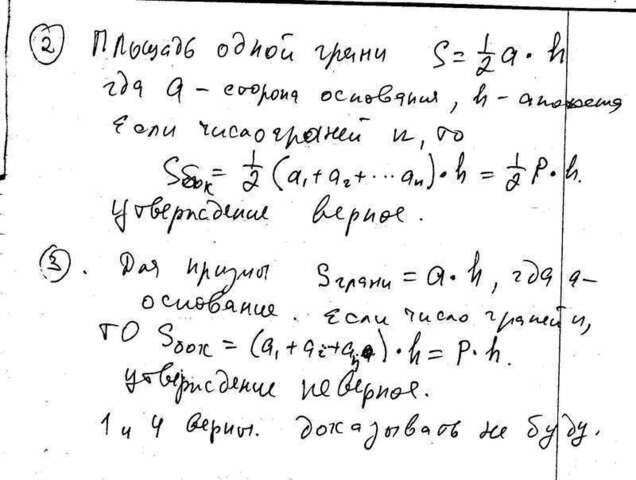 ② Площадь одной грани S = 1/2 a · h
где a - сторона основания, h - апофема
Если число граней n, то
Sбок = 1/2 (a₁ + a₂ + ... aₙ) · h = 1/2 P · h.
утверждение верное.
③. Для призмы Sграни = a · h, где a -
основание. Если число граней n,
то Sбок = (a₁ + a₂ + aₙ) · h = P · h.
утверждение неверное.
1 и 4 верны. доказывать не буду.